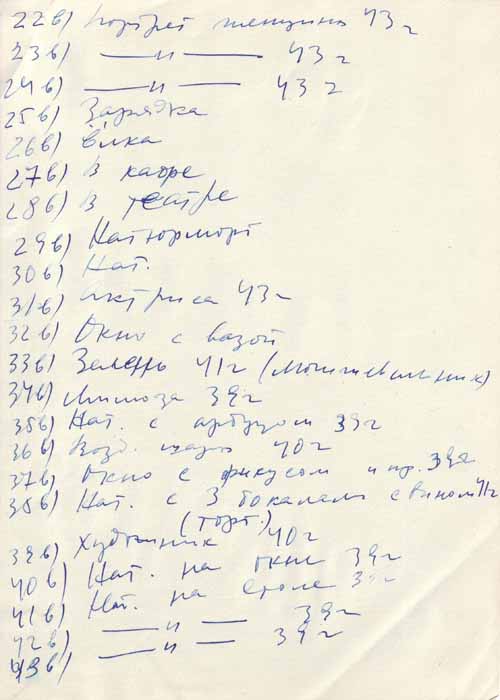 22в) портрет женщины 43 г
23в) —— и —— 43 г
24в) —— и —— 43 г
25в) Зарядка
26в) ёлка
27в) В кафе
28в) В театре
29в) Натюрморт
30в) Нат.
31в) Актриса 43 г
32в) Окно с вазой
33в) Зелень 41 г (
34в) Мимоза 39 г
35в) Нат. с арбузом 39 г
36в) Возд. шары 40 г
37в) Окно с фикусом и пр. 39 г
38в) Нат. с 3 бокалами с вином 41 г
(торт.)
39в) Художник 40 г
40в) Нат. на окне 39 г
41в) Нат. на столе 39 г
42в) —— и —— 39 г
43в) —— и —— 39 г